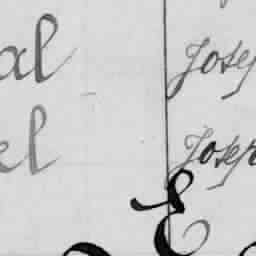 al Josep
el Josep
E